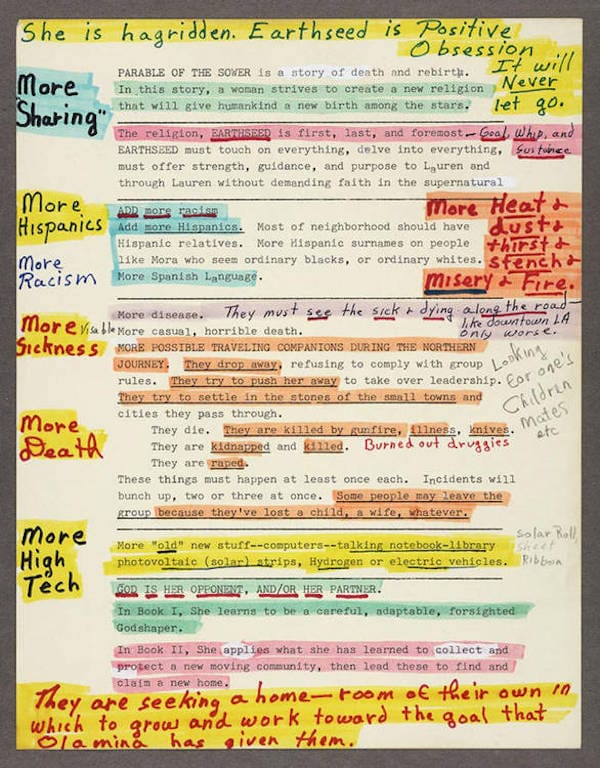 She is hagridden. Earthseed is Positive
Obsession
It will
Never
let go.
More
"Sharing"
PARABLE OF THE SOWER is a story of death and rebirth.
In this story, a woman strives to create a new religion
that will give humankind a new birth among the stars.
The religion, EARTHSEED is first, last, and foremost—Goal, Whip, and
Sustenance
EARTHSEED must touch on everything, delve into everything,
must offer strength, guidance, and purpose to Lauren and
through Lauren without demanding faith in the supernatural
More
Hispanics
More
Racism
ADD more racism
Add more Hispanics. Most of neighborhood should have
Hispanic relatives. More Hispanic surnames on people
like Mora who seem ordinary blacks, or ordinary whites.
More Spanish Language.
More Heat &
dust &
thirst &
stench &
Misery & Fire.
More disease. They must see the sick & dying along the road—
like downtown LA
only worse.
More Visable
Sickness
More casual, horrible death.
MORE POSSIBLE TRAVELING COMPANIONS DURING THE NORTHERN
JOURNEY. They drop away, refusing to comply with group
rules. They try to push her away to take over leadership.
They try to settle in the stones of the small towns and
cities they pass through.
Looking
for one's
Children
Mates
etc
More
Death
They die. They are killed by gunfire, illness, knives.
They are kidnapped and killed. Burned out druggies
They are raped.
These things must happen at least once each. Incidents will
bunch up, two or three at once. Some people may leave the
group because they've lost a child, a wife, whatever.
More
High
Tech
More "old" new stuff--computers--talking notebook-library
photovoltaic (solar) strips, Hydrogen or electric vehicles.
Solar Roll,
sheet
Ribbon
GOD IS HER OPPONENT, AND/OR HER PARTNER.
In Book I, She learns to be a careful, adaptable, forsighted
Godshaper.
In Book II, She applies what she has learned to collect and
protect a new moving community, then lead these to find and
claim a new home.
They are seeking a home—room of their own in
which to grow and work toward the goal that
Olamina has given them.